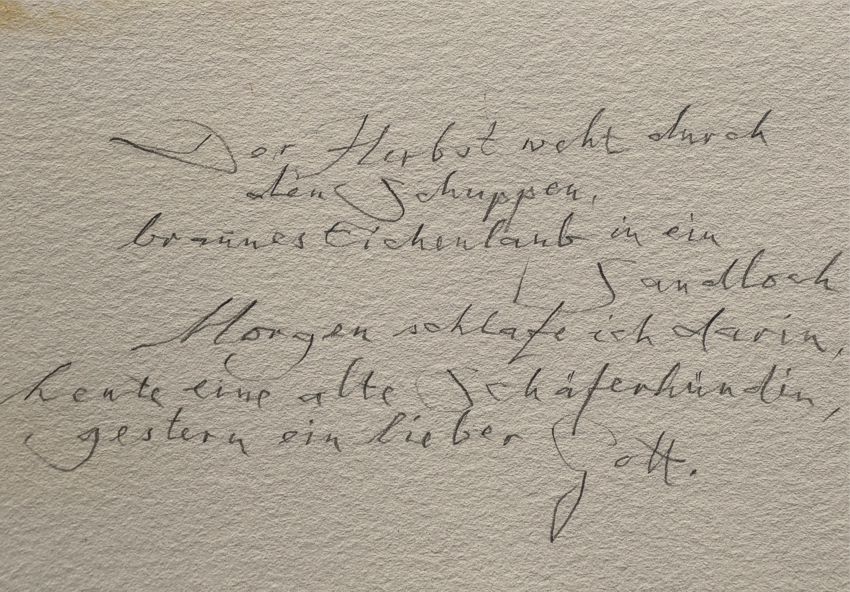 Der Herbst weht durch
den Schuppen,
braunes Eichenlaub in ein
Sandloch
Morgen schlafe ich darin,
heute eine alte Schäferhündin,
gestern ein lieber Gott.